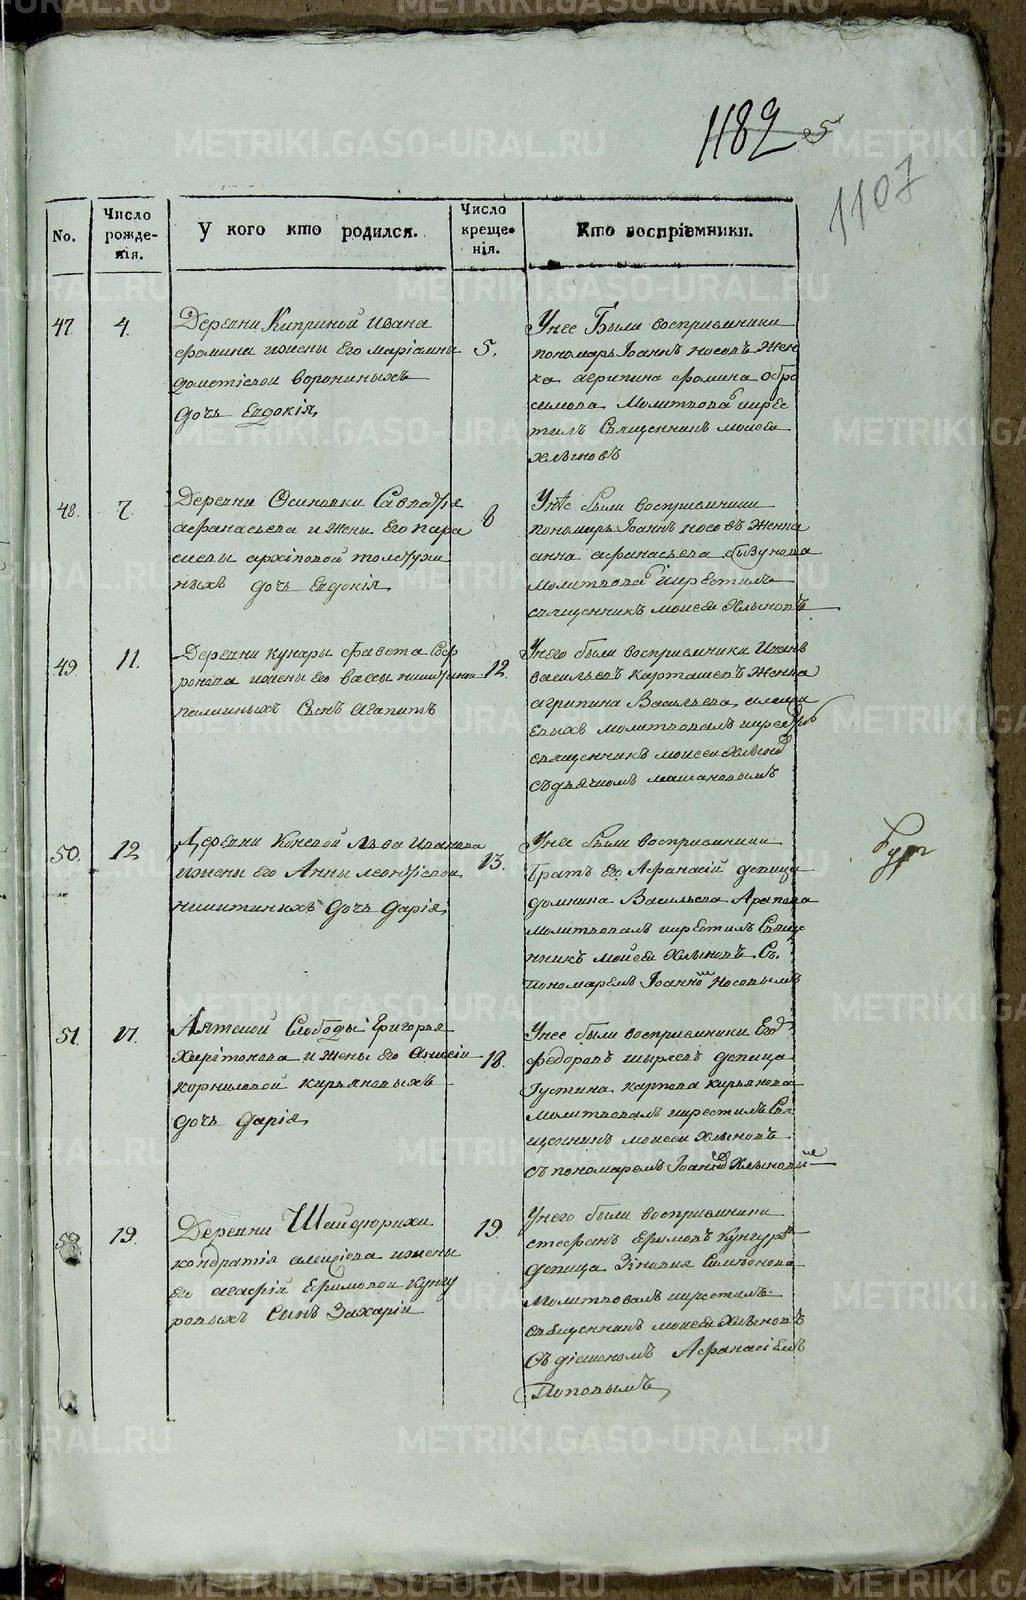 1182 25
1107
No.
Число рожде-нія.
У кого кто родился.
Число креще-нія.
Кто воспріемники.
47.
4.
Деревни Киприной Ивана
Фомина ижены Его маріамны
дометіевой ворониныхъ
дочь Евдокія
5.
Унее Были восприемники
пономарь Іоаннъ носовъ Жен
ка агрипина Фомина
Молитвовалъ икрес
тилъ Священникъ моисей
хлыновъ
48.
7.
Деревни Осиновки Савватѣя
афанасьева и жены Его пара
скевы архіповой
ныхъ дочь Евдокія
8
Унѣе были восприемники
пономарь Іоаннъ носовъ Женка
анна афанасьева бызукова
Молитвовалъ икрестилъ
священникъ моисей Хлыновъ
49.
11.
Деревни кунары Соф
ронова ижены Его вассы
палиныхъ Сынъ Агапитъ
12.
Унего были восприемники Иванъ
васильевъ Карташевъ Женка
агрипина Васильева
молитвовалъ икрестилъ
священникъ моисей Хлыновъ
съдьячкомъ
50.
12
Деревни Коневой Льва Иванова
ижены Его Анны леонтіевой
никитиныхъ дочь дарія
13.
Унее были восприемники
Братъ Его Афанасій девица
домнина Васильева Арапова
молитвовалъ икрестилъ Свяще
нникъ моисей Хлыновъ Съ
пономаремъ Іоанномъ Носовымъ
51.
17.
Аятской Слободы Григорья
Харитонова и жены Его Анисіи
корниловой кирьяновыхъ
дочь дарія
18.
Унее были восприемники
федоровъ девица
Густина карпова кирьянова
Молитвовалъ икрестилъ Свя
щенникъ моисей хлыновъ
съ пономаремъ Іоанномъ Хлыновымъ
52
19.
Деревни Шайдюрихи
кондратія алексіева ижены
Его агафіи Ефимовой Кунгу
ровыхъ Сынъ Захарій
19.
Унего были восприемники
стефанъ Ефимовъ Кунгуръ
девица Зіновия Симионова
Молитвовалъ икрестилъ
священникъ моисей Хлыновъ
Съ діакономъ Афанасіемъ
Поповымъ
METRIKI.GASO-URAL.RU